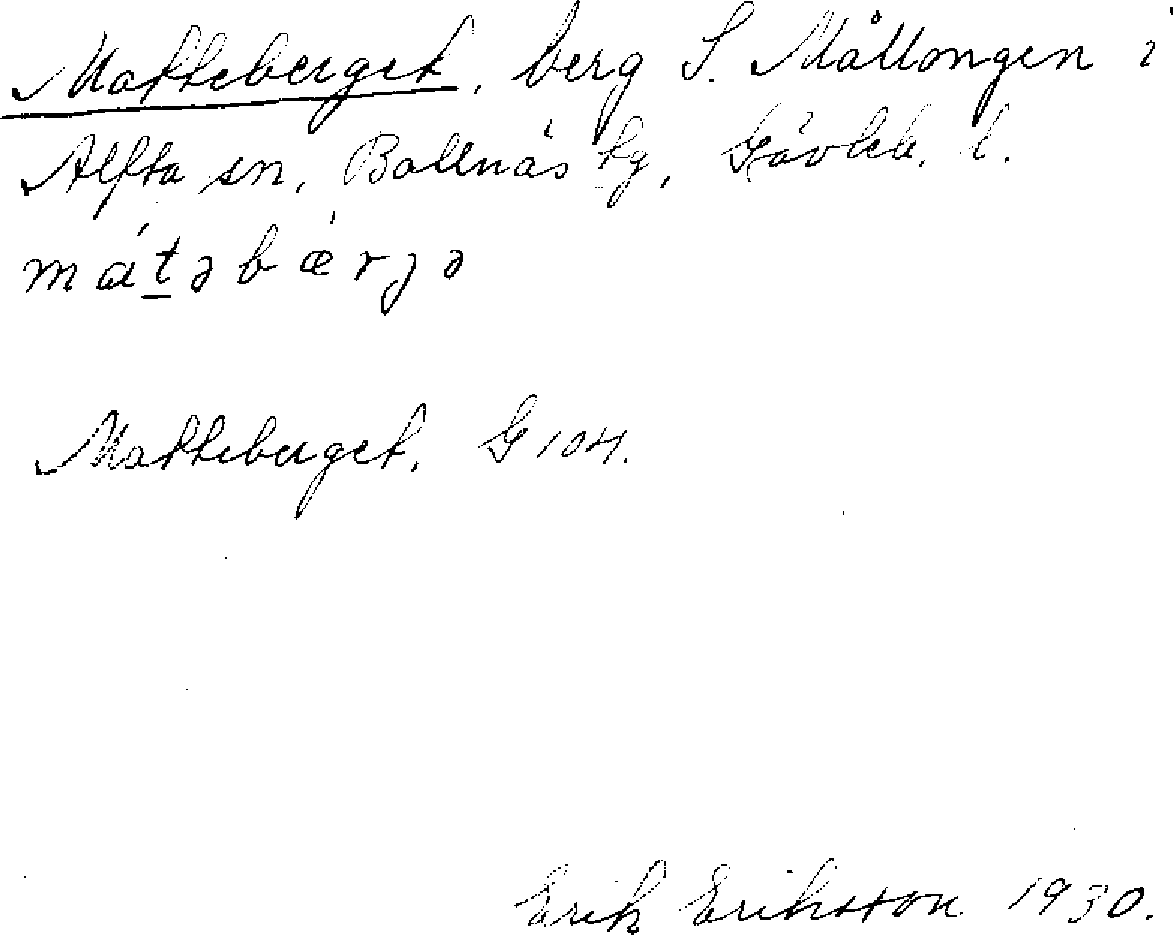 Matteberget, berg S. Mållongen i
Alfta sn, Bollnäs tg, Gävleb. l.
mátəbǽrjə
Matteberget, G 104.
Erik Eriksson 1930.